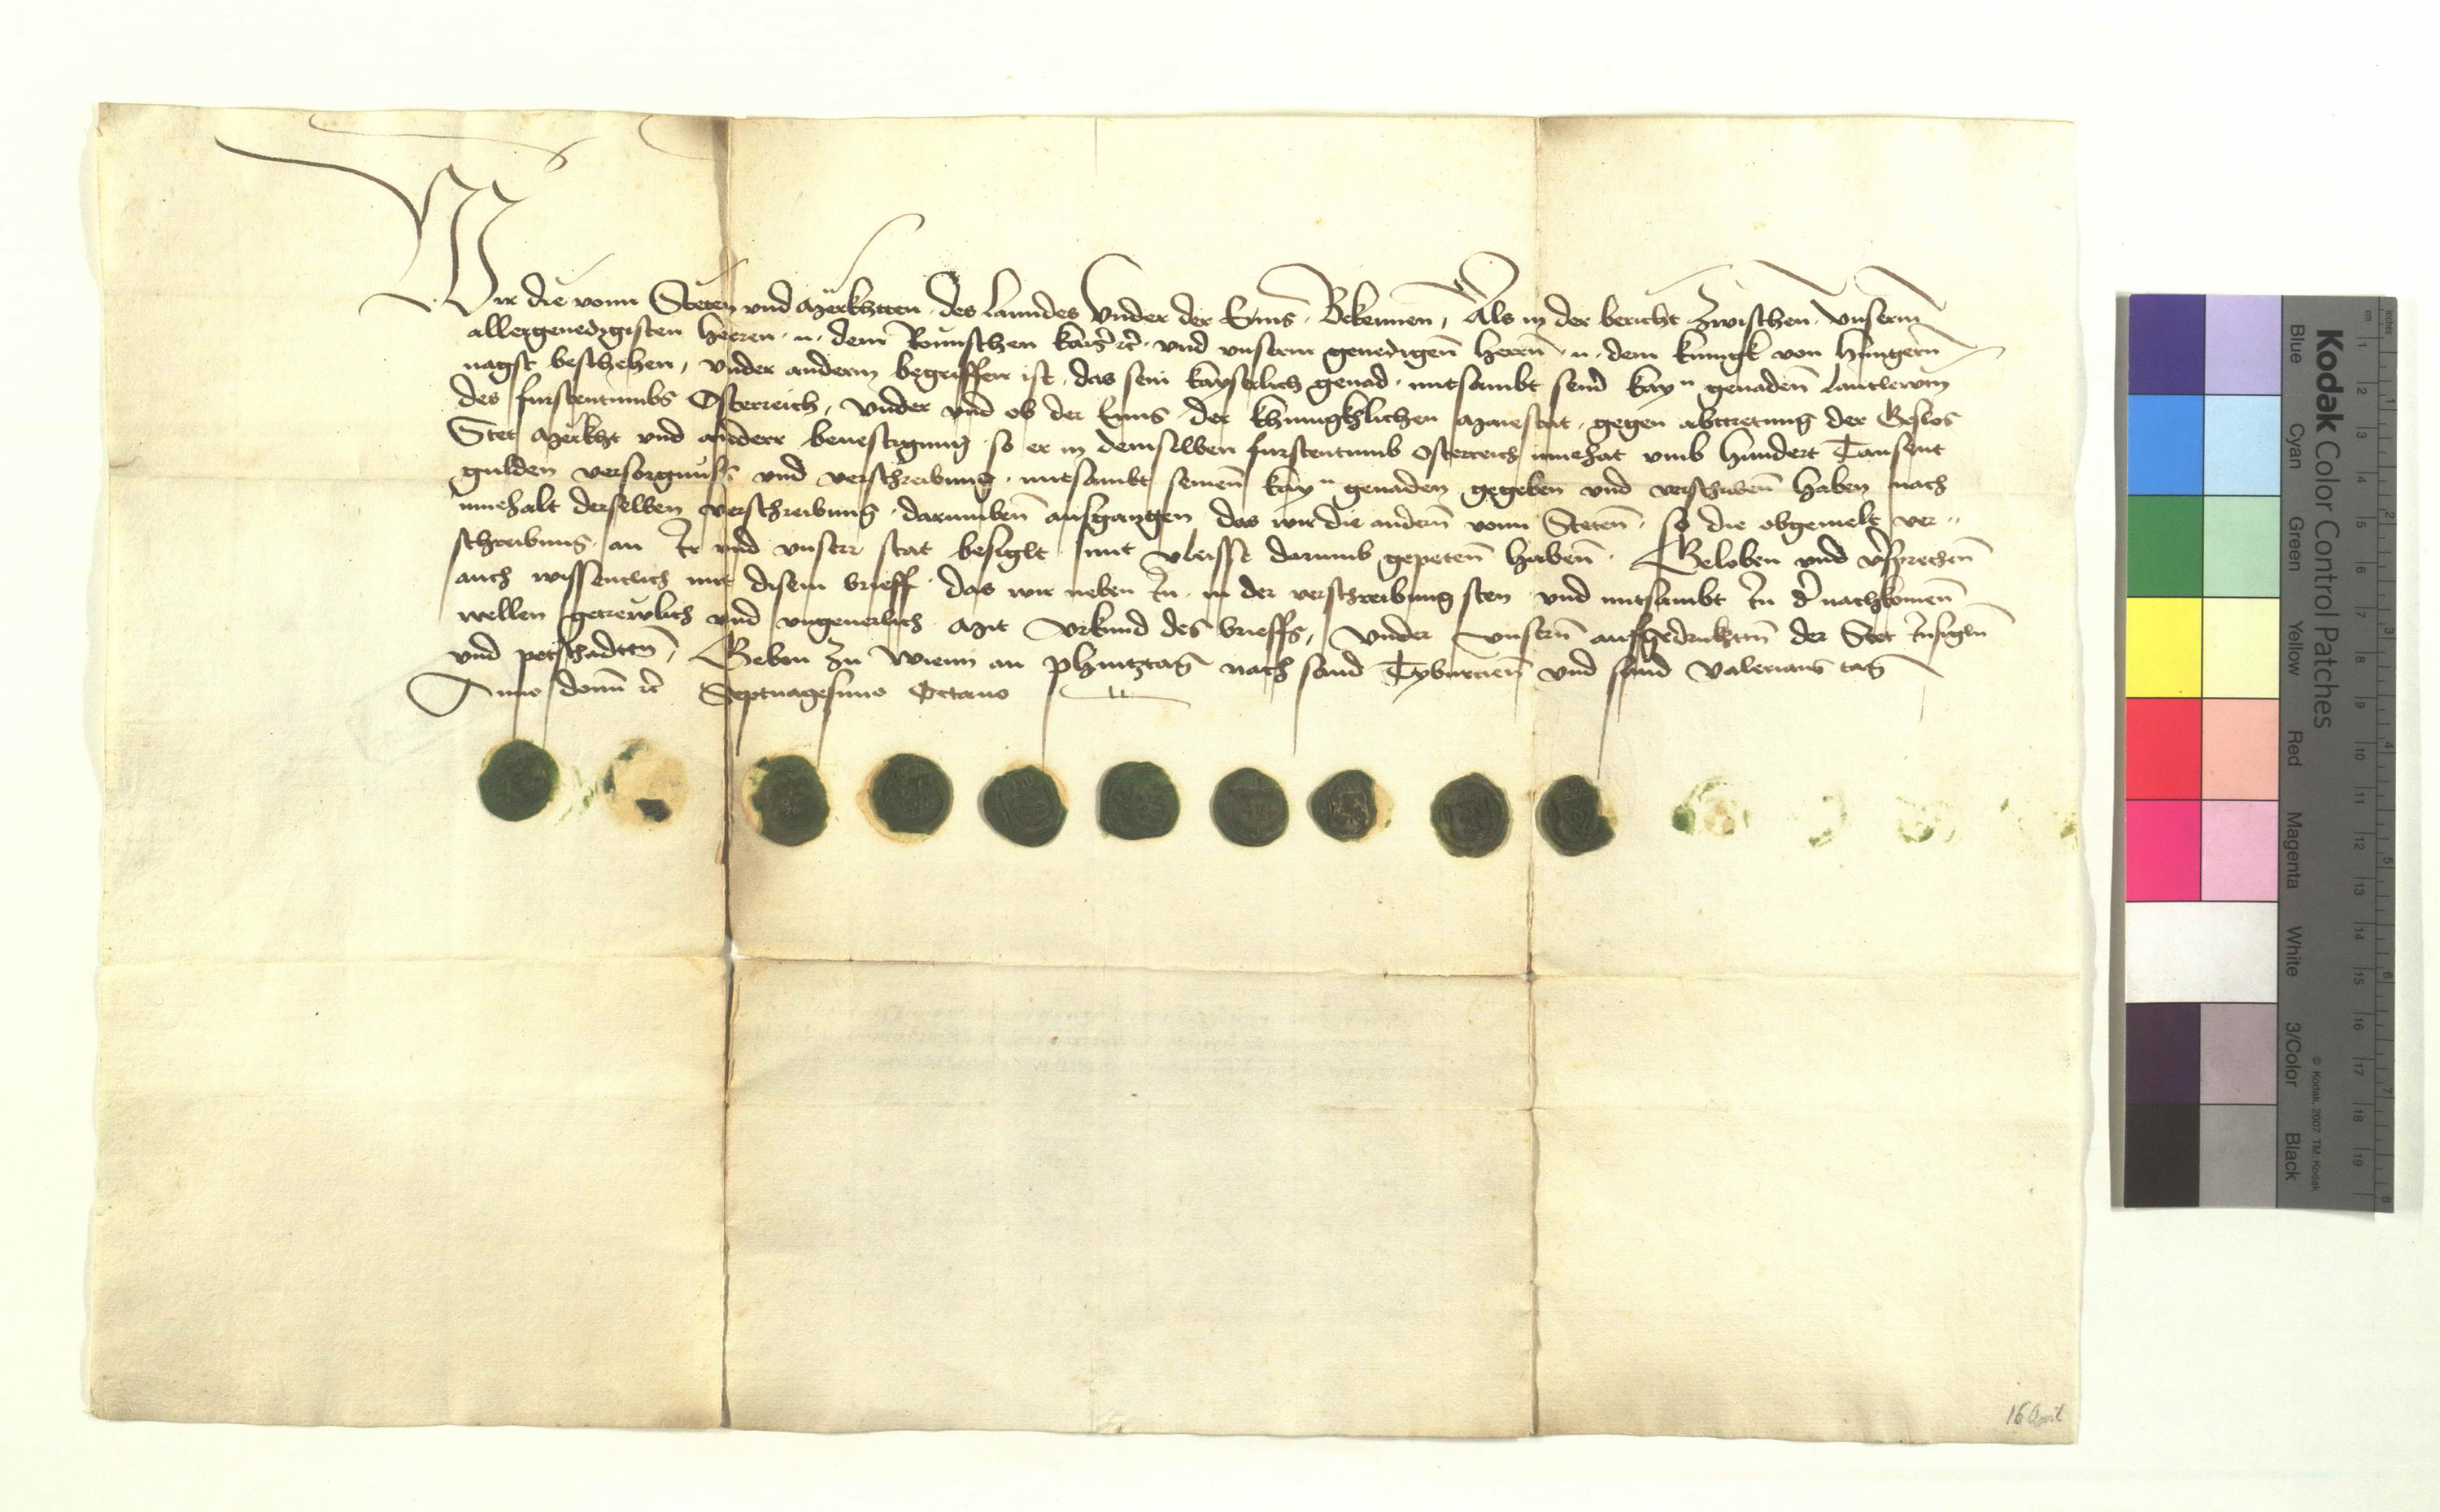 Wir die vonn Steten und Merkhtten des Lanndes Under der Enns Bekennen, Als in der bericht Zwischen Unserm
allergenedigisten herren n dem Romischen kaiser etc und unserm genedigen herren n dem kunigk von Hungern
nagst beschehen, under anderm begriffen ist das sein kayserlich genad mitsambt seiner kayn genaden lantlewten
des furstentumbs Osterreich, under und ob der Enns der khunigkhlichen Maiestat gegen abtretung der Geslos
Stet Merkht und annderr bevestigung so er in demselben furstentumb Osterreich innehat umb hundert Tausent
gulden versorgnuss und verschreibung mitsambt seinen kayn genaden gegeben und verschriben haben nach
innehalt derselben verschreibung darumben ausgangen das wir die andern vonn Steten so die obgemelt ver=
schreibung an Ir und unserr stat besiglt mit vleisse darumb gepeten haben Geloben und versprechen
auch wissentlich mit disem brieff das wir neben In in der verschreibung sten und mitsambt In der nachkomen
wellen getrewlich und ungeverlich Mit Urkund des brieffs, Under unsern aufgedrukhten der Stet Insigln
und petschadten, Geben zu Wienn an phintztag nach sand Tyburcien und sand Valerians tag
Anno domini etc Septuagesimo Octavo
16 April
Kodak Color Control Patches
Blue Cyan Green Yellow Red Magenta White 3/Color Black
© Kodak, 2007 TM: Kodak
cm 1 2 3 4 5 6 7 8 9 10 11 12 13 14 15 16 17 18 19
inches 1 2 3 4 5 6 7 8